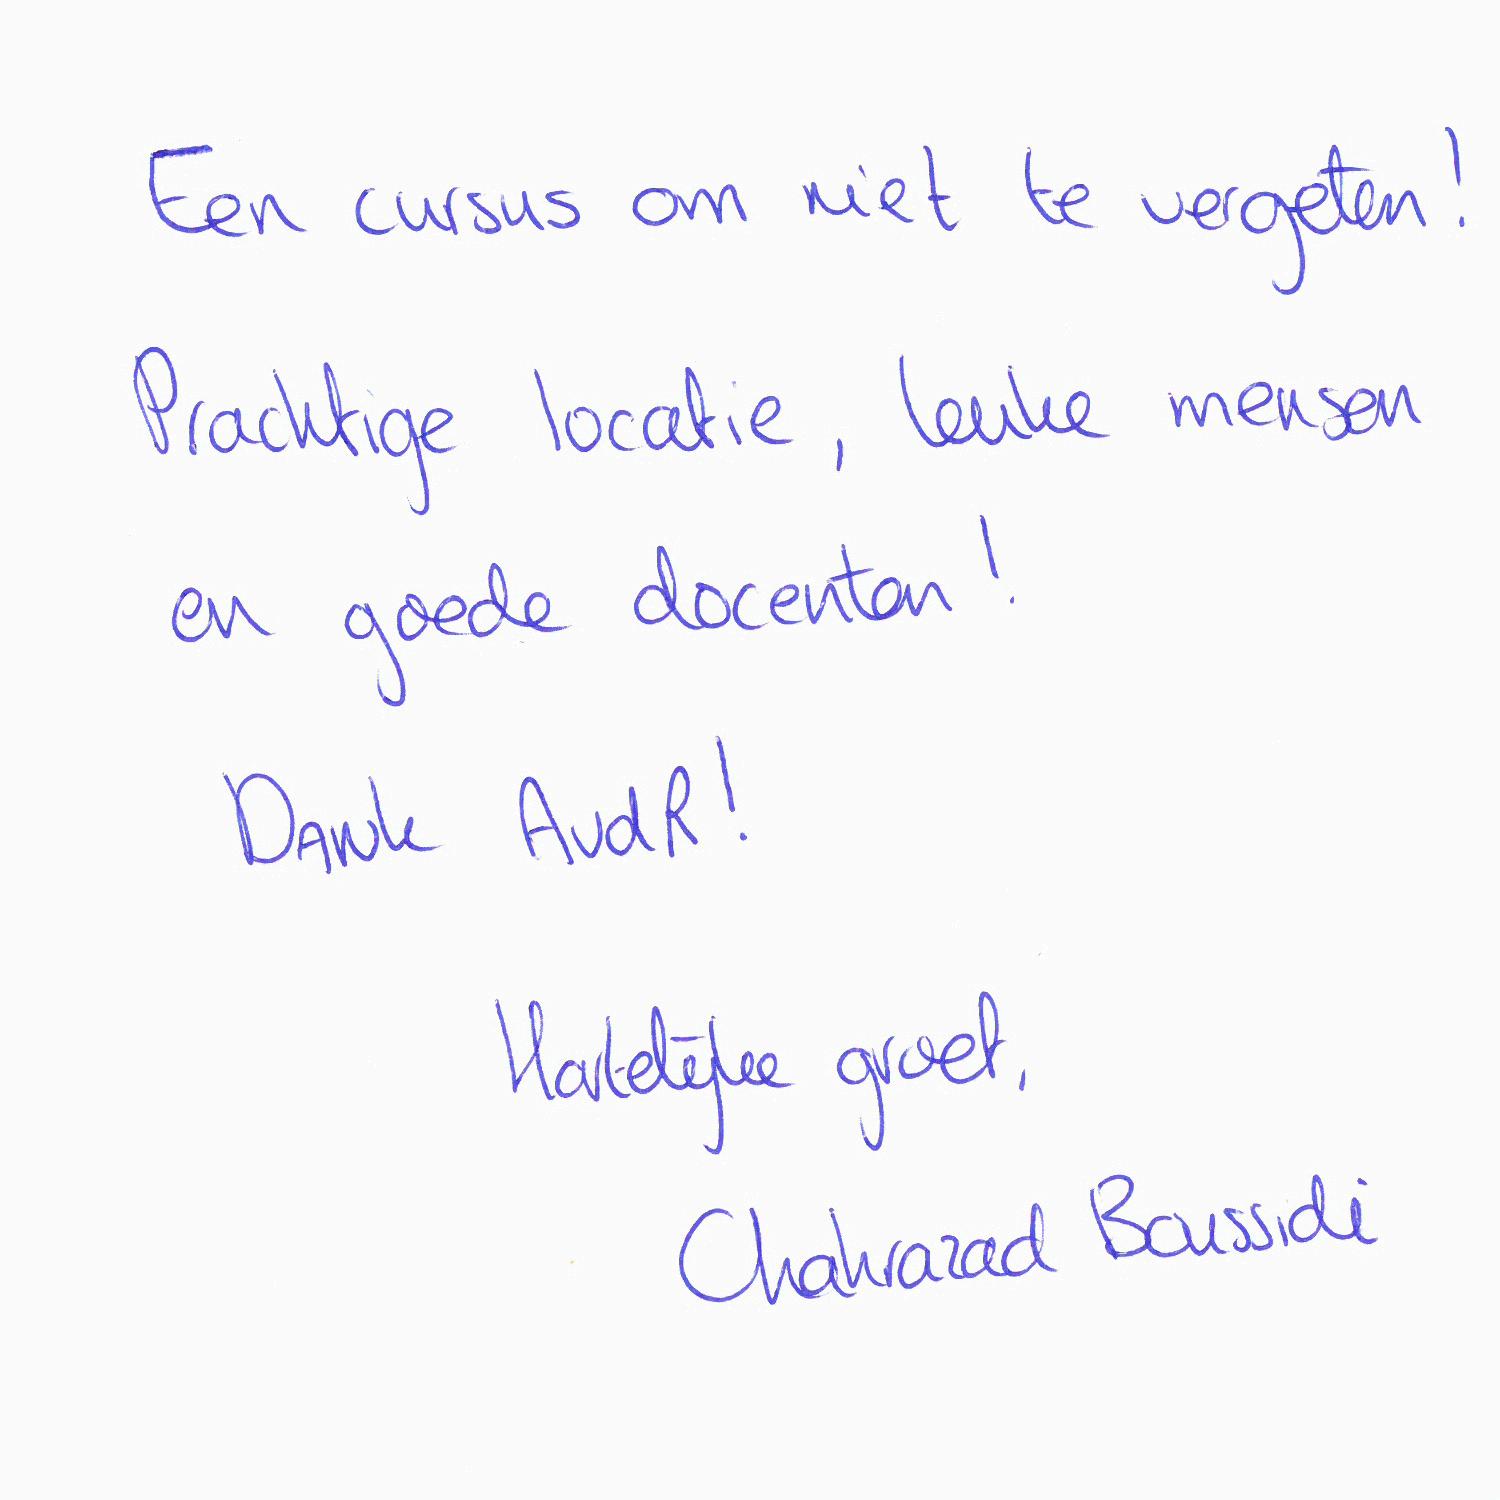 Een cursus om niet te vergeten!
Prachtige locatie, leuke mensen
en goede docenten!
Dank AvdR!
Hartelijke groet,
Chahrazad Boussidi